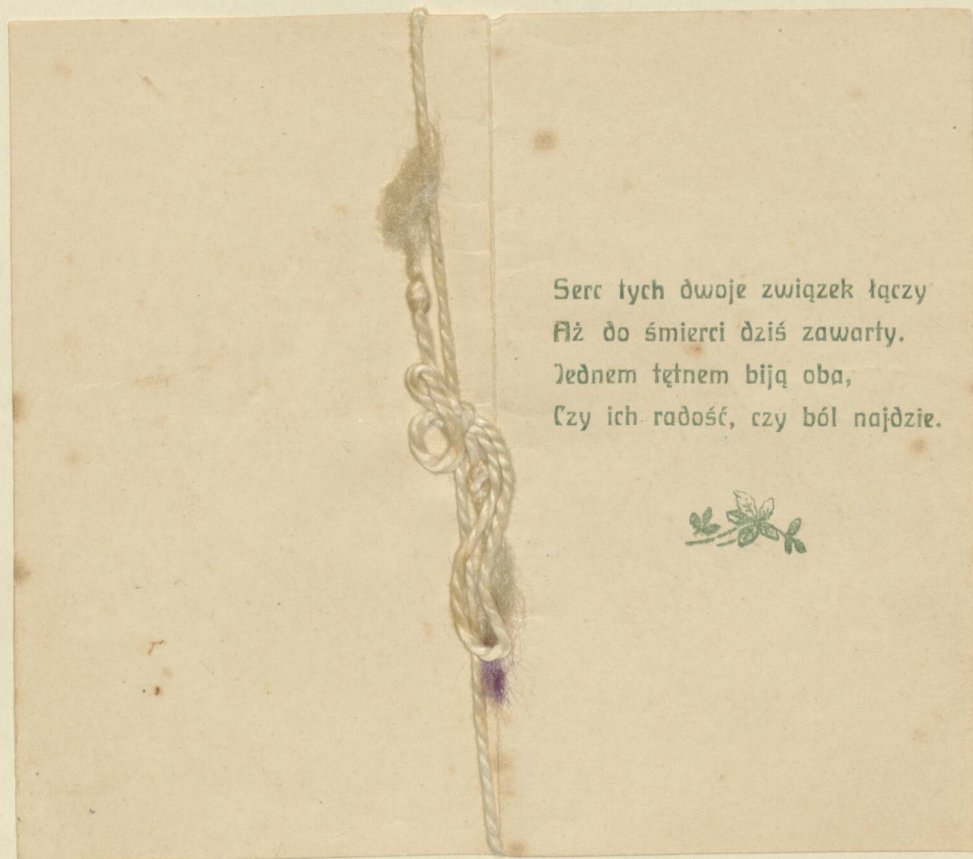 Serc tych dwoje związek łączy
Aż do śmierci dziś zawarty.
Jednem tętnem biją oba,
Czy ich radość, czy ból najdzie.